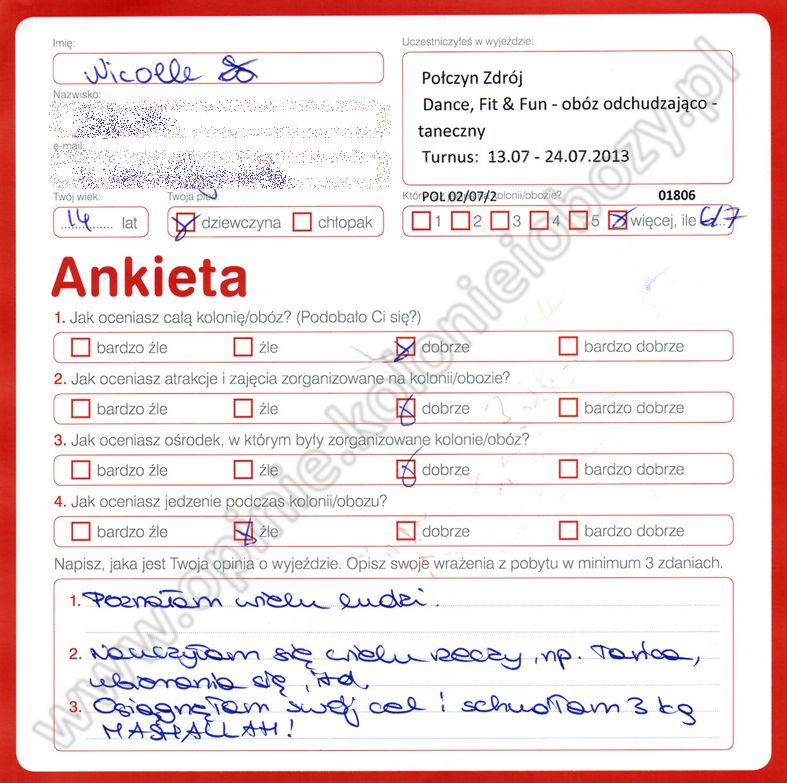 Imię:
Nicolle
Nazwisko:
e-mail:
Twój wiek:
14 lat
Twoja płeć:
dziewczyna chłopak
Uczestniczyłeś w wyjeździe:
Połczyn Zdrój
Dance, Fit & Fun - obóz odchudzająco -
taneczny
Turnus: 13.07 - 24.07.2013
POL 02/07/2 01806
kolonii/obozie?
1 2 3 4 5 więcej, ile 6/7
Ankieta
1. Jak oceniasz całą kolonię/obóz? (Podobało Ci się?)
bardzo źle źle dobrze bardzo dobrze
2. Jak oceniasz atrakcje i zajęcia zorganizowane na kolonii/obozie?
bardzo źle źle dobrze bardzo dobrze
3. Jak oceniasz ośrodek, w którym były zorganizowane kolonie/obóz?
bardzo źle źle dobrze bardzo dobrze
4. Jak oceniasz jedzenie podczas kolonii/obozu?
bardzo źle źle dobrze bardzo dobrze
Napisz, jaka jest Twoja opinia o wyjeździe. Opisz swoje wrażenia z pobytu w minimum 3 zdaniach.
1. Poznałam wielu ludzi.
2. Nauczyłam się wielu rzeczy, np. tańca,
ubierania się, itd.
3. Osiągnęłam swój cel i schudłam 3 kg
MASHALLAH!
www.opinie.kolonieiobozy.pl